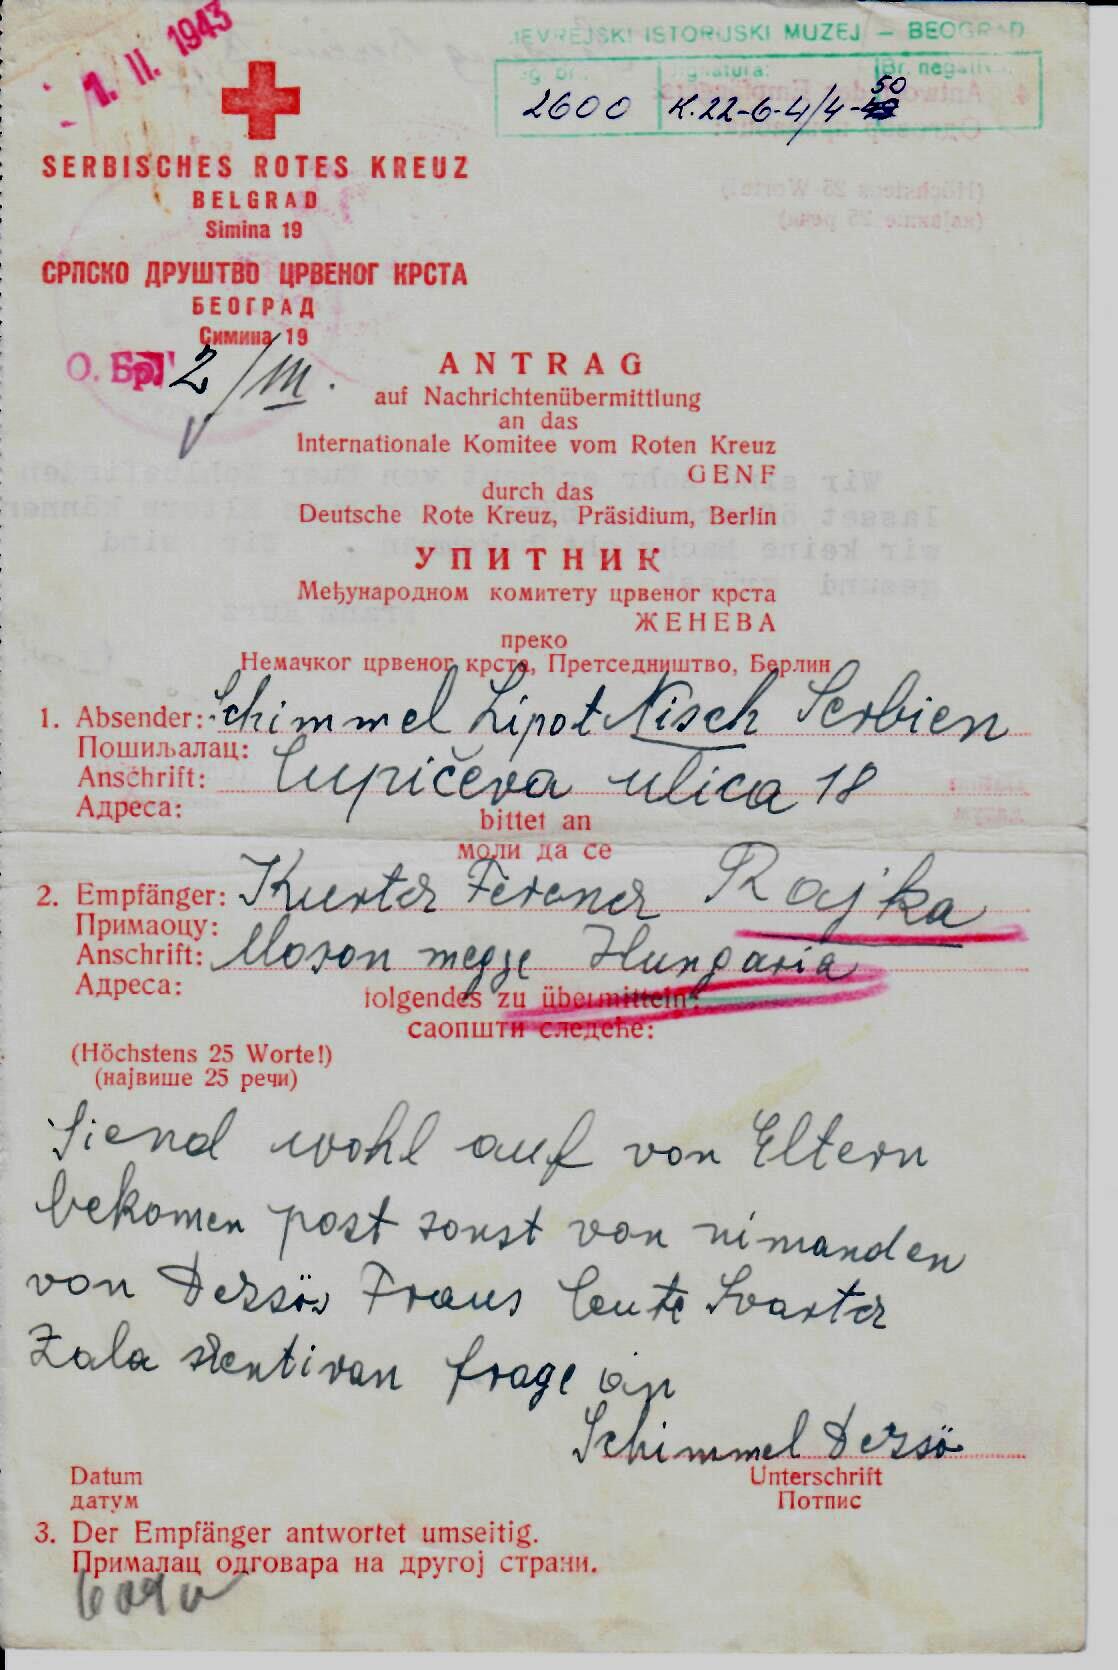 1. II. 1943
JEVREJSKI ISTORIJSKI MUZEJ – BEOGRAD
signatura: Br. negativa
50
2600 K.22-6-4/4-
SERBISCHES ROTES KREUZ
BELGRAD
Simina 19
СРПСКО ДРУШТВО ЦРВЕНОГ КРСТА
БЕОГРАД
Симина 19
О. Бр. 2/III.
ANTRAG
auf Nachrichtenübermittlung
an das
Internationale Komitee vom Roten Kreuz
GENF
durch das
Deutsche Rote Kreuz, Präsidium, Berlin
УПИТНИК
Међународном комитету црвеног крста
ЖЕНЕВА
преко
Немачког црвеног крста, Претседништво, Берлин
1. Absender: Schimmel Lipot Nisch Serbien
Пошиљалац:
Anschrift: Cupičeva ulica 18
Адреса:
bittet an
моли да се
2. Empfänger: Kurtz Ferencz Rajka
Примаоцу:
Anschrift: Moson megye Hungaria
Адреса:
folgendes zu übermitteln:
саопшти следеће:
(Höchstens 25 Worte!)
(највише 25 речи)
Siend wohl auf von Eltern
bekomen post sonst von nimanden
von Dezsös Fraus leute Svartz
Zala szentivan frage an
Schimmel Dezsö
Datum Unterschrift
датум Потпис
3. Der Empfänger antwortet umseitig.
Прималац одговара на другој страни.